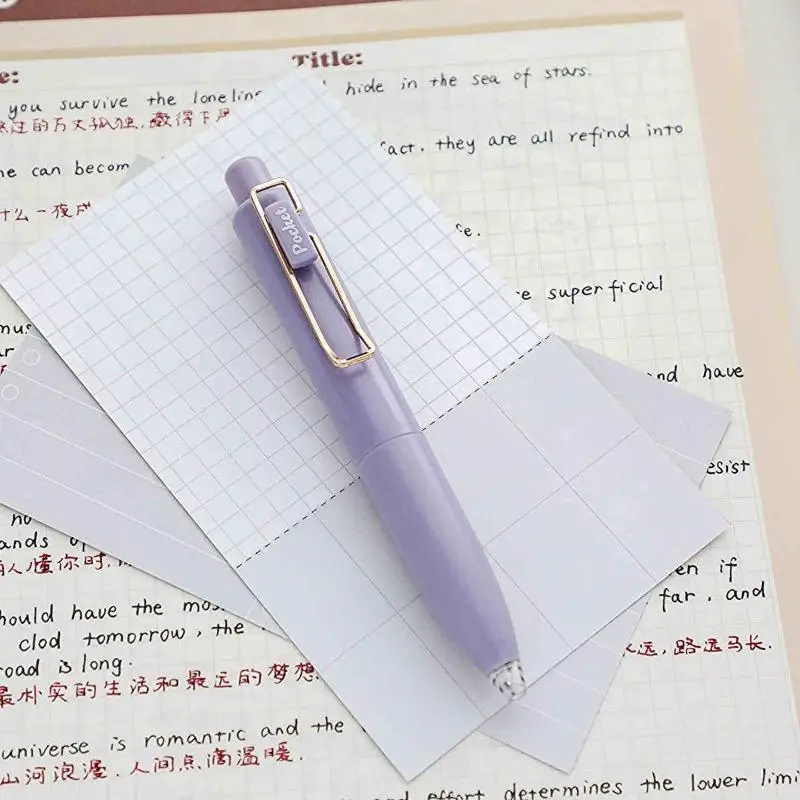 e:
Title:
you survive the lonelin
hide in the sea of stars.
的万丈孤独,
fact. they are all refind into
e can becom
什么一夜成
e.
e superficial
mus
ar
nd have
esist
no
ands o
人懂你时,
en if
hould have the mos
far, and
clod tomorrow, the
远,路远马长.
road is long.
最朴实的生活和最远的梦想
universe is romantic and the
山河浪漫.人间点滴温暖.
and effort determines the lower limi
Pocket